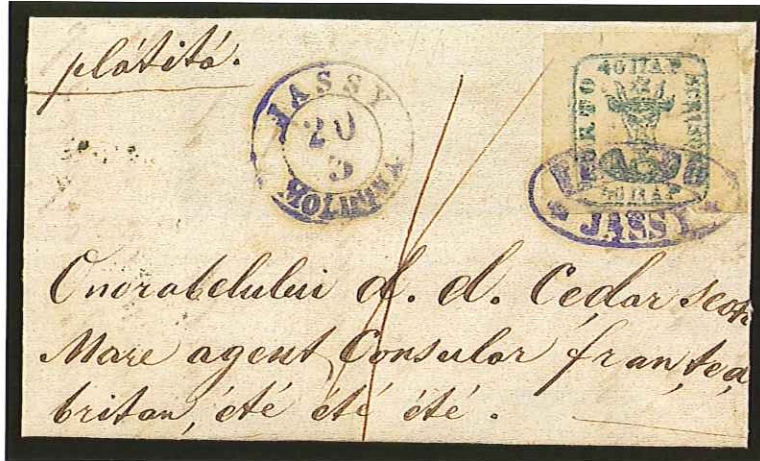 plátitá.
JASSY
20
3
MOLDAU
40 ПАР
PORTO SCRISOREI
40 ПАР
FRANCO
JASSY
Onorabelului d. d. Cedar scott
Mare agent Consular franțea
britan, été été été.